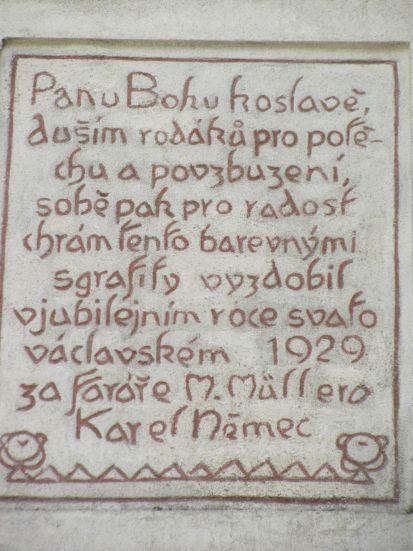 Panu Bohu koslavě,
duším rodáků pro potě-
chu a povzbuzení,
sobě pak pro radost
chrám tento barevnými
sgrafity vyzdobil
vjubilejním roce svato
václavském 1929
za faráře M. Müllero
Karel Němec